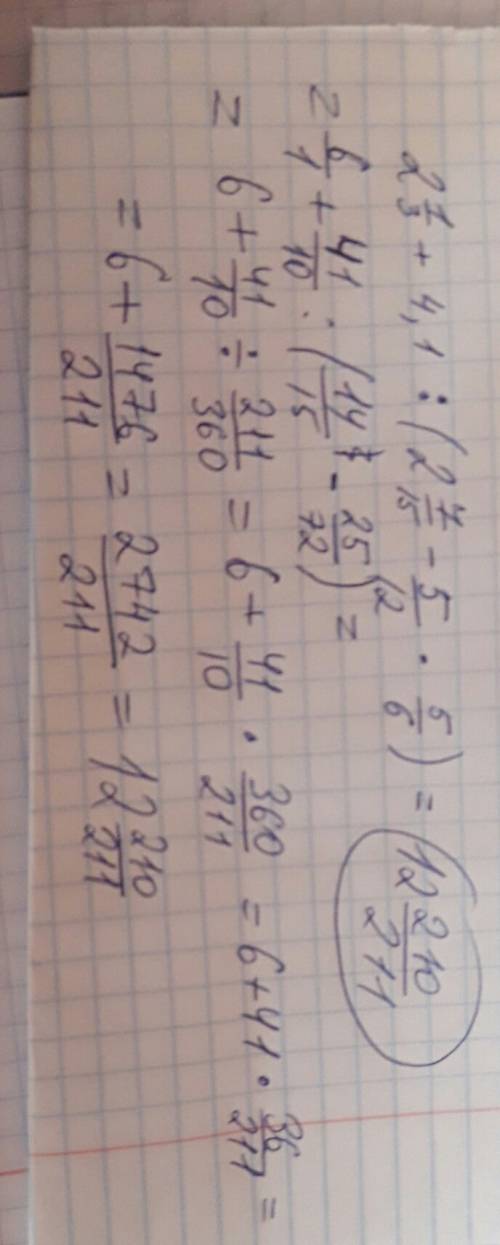 2 7/3 + 4,1 : (2 7/15 - 5/12 · 5/6) = 12 210/211
= 6/1 + 41/10 : (14/15 - 25/72) =
= 6 + 41/10 ÷ 211/360 = 6 + 41/10 · 360/211 = 6 + 41 · 36/211 =
= 6 + 1476/211 = 2742/211 = 12 210/211